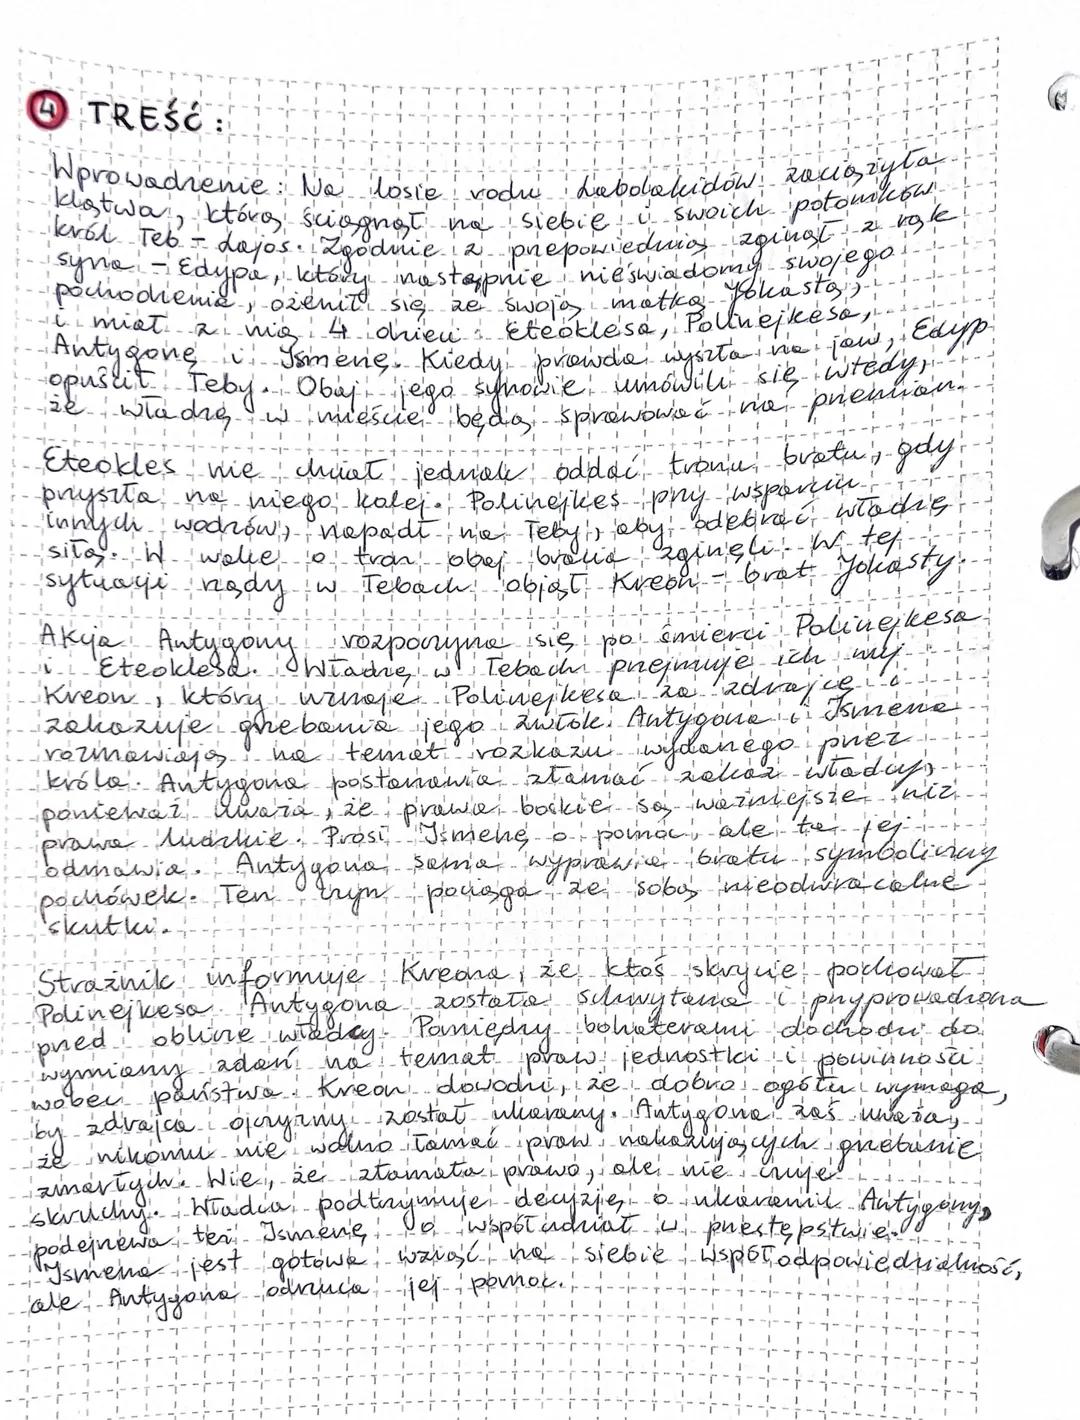 4 TREŚĆ:
Wprowadzenie: Na losie rodu Labdakidów zaciążyła
klątwa, którą ściągnął na siebie i swoich potomków
król Teb – Lajos. Zgodnie z przepowiednią zginął z rąk
syna – Edypa, który następnie nieświadomy swojego
pochodzenia, ożenił się ze swoją matką Jokastą,
i miał z nią 4 dzieci: Eteoklesa, Polinejkesa,
Antygonę i Ismenę. Kiedy prawda wyszła na jaw, Edyp
opuścił Teby. Obaj jego synowie umówili się wtedy,
że władzę w mieście będą sprawować na przemian.
Eteokles nie chciał jednak oddać tronu bratu, gdy
przyszła na niego kolej. Polinejkes przy wsparciu
innych wodzów, napadł na Teby, aby odebrać władzę
siłą. W walce o tron obaj bracia zginęli. W tej
sytuacji rządy w Tebach objął Kreon – brat Jokasty.
Akcja Antygony rozpoczyna się po śmierci Polinejkesa
i Eteoklesa. Władzę w Tebach przejmuje ich wuj
Kreon, który uznaje Polinejkesa za zdrajcę i
zakazuje grzebania jego zwłok. Antygona i Ismena
rozmawiają na temat rozkazu wydanego przez
króla. Antygona postanawia złamać zakaz władcy,
ponieważ uważa, że prawa boskie są ważniejsze niż
prawa ludzkie. Prosi Ismenę o pomoc, ale ta jej
odmawia. Antygona sama wyprawia bratu symboliczny
pochówek. Ten czyn pociąga ze sobą nieodwracalne
skutki.
Strażnik informuje Kreona, że ktoś skrycie pochował
Polinejkesa. Antygona została schwytana i przyprowadzona
przed oblicze władcy. Pomiędzy bohaterami dochodzi do
wymiany zdań na temat praw jednostki i powinności
wobec państwa. Kreon dowodzi, że dobro ogółu wymaga,
by zdrajca ojczyzny został ukarany. Antygona zaś uważa,
że nikomu nie wolno łamać praw nakazujących grzebanie
zmarłych. Wie, że złamała prawo, ale nie czuje
skruchy. Władca podtrzymuje decyzję o ukaraniu Antygony,
podejrzewa też Ismenę o współudział w przestępstwie.
Ismena jest gotowa wziąć na siebie współodpowiedzialność,
ale Antygona odrzuca jej pomoc.